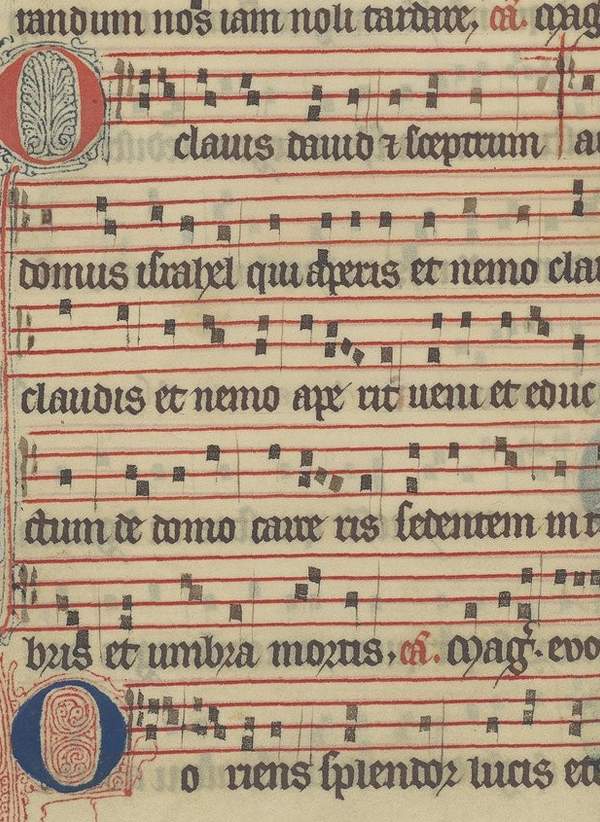 tandum nos iam noli tardare. eā. Mag
O clauis dauid ⁊ sceptrum
domus israhel qui aperis et nemo clau
claudis et nemo ape rit ueni et educ
ctum de domo carce ris sedentem in t
bris et umbra mortis. eā. Mag̃. evo
O o riens splendor lucis ete